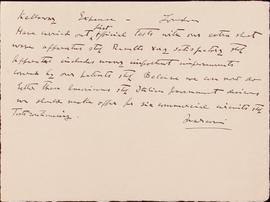 Kellaway Expanse - London
Have carried out first official tests with our extra short
wave apparatus stop Results very satisfactory stop
Apparatus includes many important improvements
covered by our patents stop Because we can now do
better than Americans stop Italian government desires
we should make offer for six commercial circuits stop
Tests continuing.
Marconi